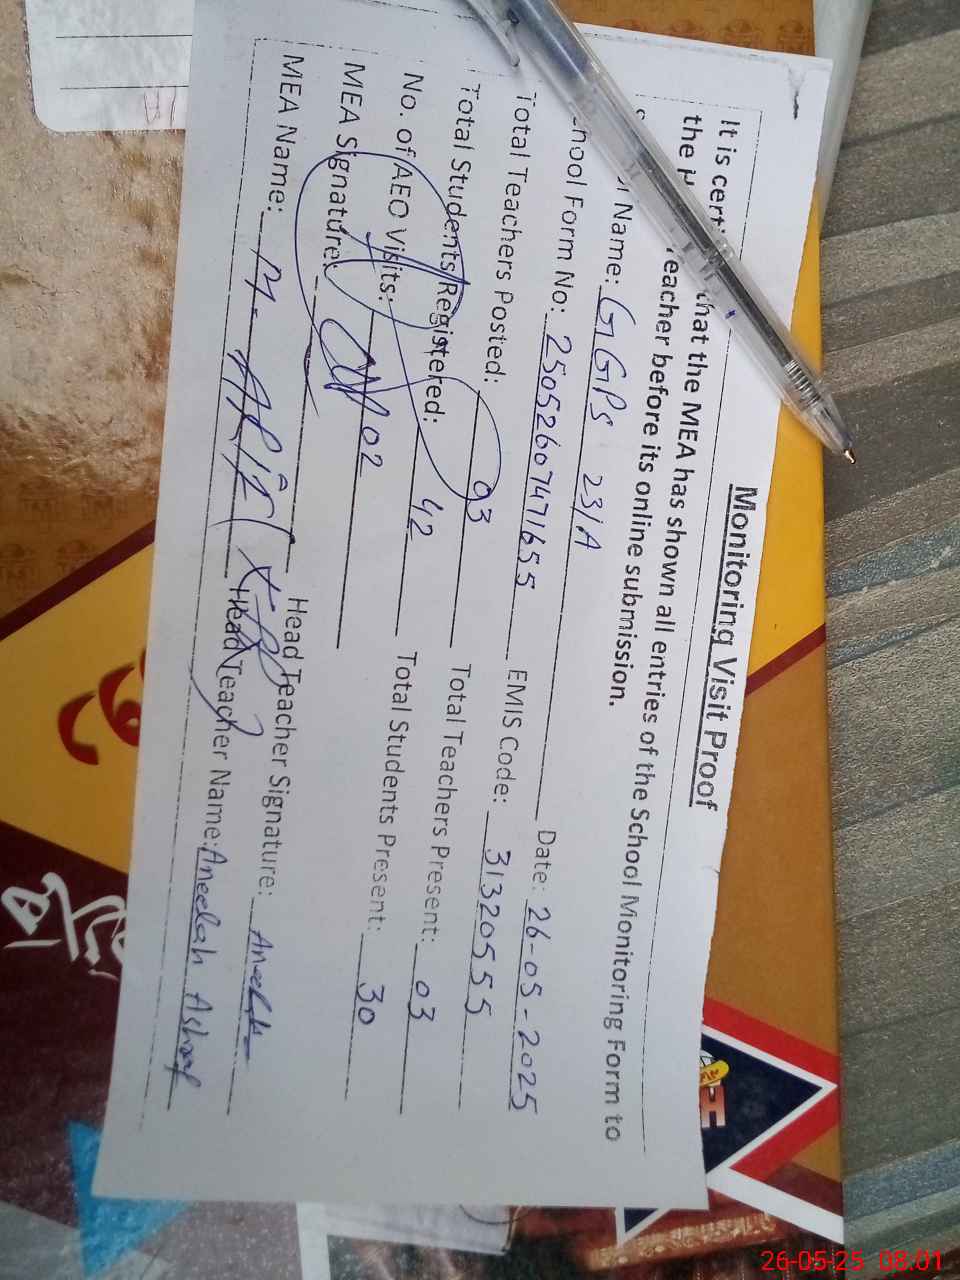 Monitoring Visit Proof
It is that the MEA has shown all entries of the School Monitoring Form to
the eacher before its online submission.
Name: GGPS 23/A Date: 26-05-2025
hool Form No: 25052607471655 EMIS Code: 31320555
Total Teachers Posted: 03 Total Teachers Present: 03
Total Students Registered: 42 Total Students Present: 30
No. of AEO Visits: 02
MEA Signature: Head Teacher Signature: Aneelah
MEA Name: M. Head Teacher Name: Aneelah Ashraf
26-05-25 08:01